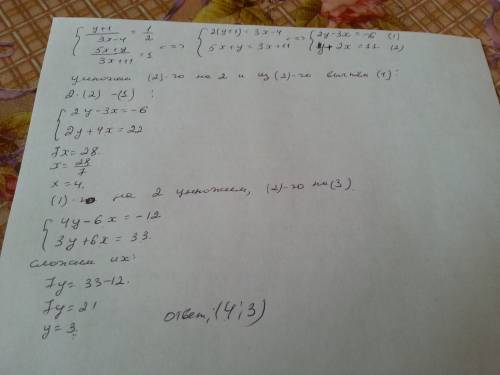 { (y+1)/(3x-4) = 1/2 ; (5x+y)/(3x+11) = 1 <=> { 2(y+1) = 3x-4 ; 5x+y = 3x+11 <=> { 2y-3x=-6 (1) ; y+2x=11. (2)
умножаем (2)-го на 2 и из (2)-го вычтем (1):
2·(2) -(1) :
{ 2y-3x=-6
2y+4x=22
7x=28.
x=28/7
x=4.
(1)-го на 2 умножаем, (2)-го на (3).
{ 4y-6x=-12
3y+6x=33.
сложаем их:
7y=33-12.
7y=21
y=3.
ответ: (4;3)